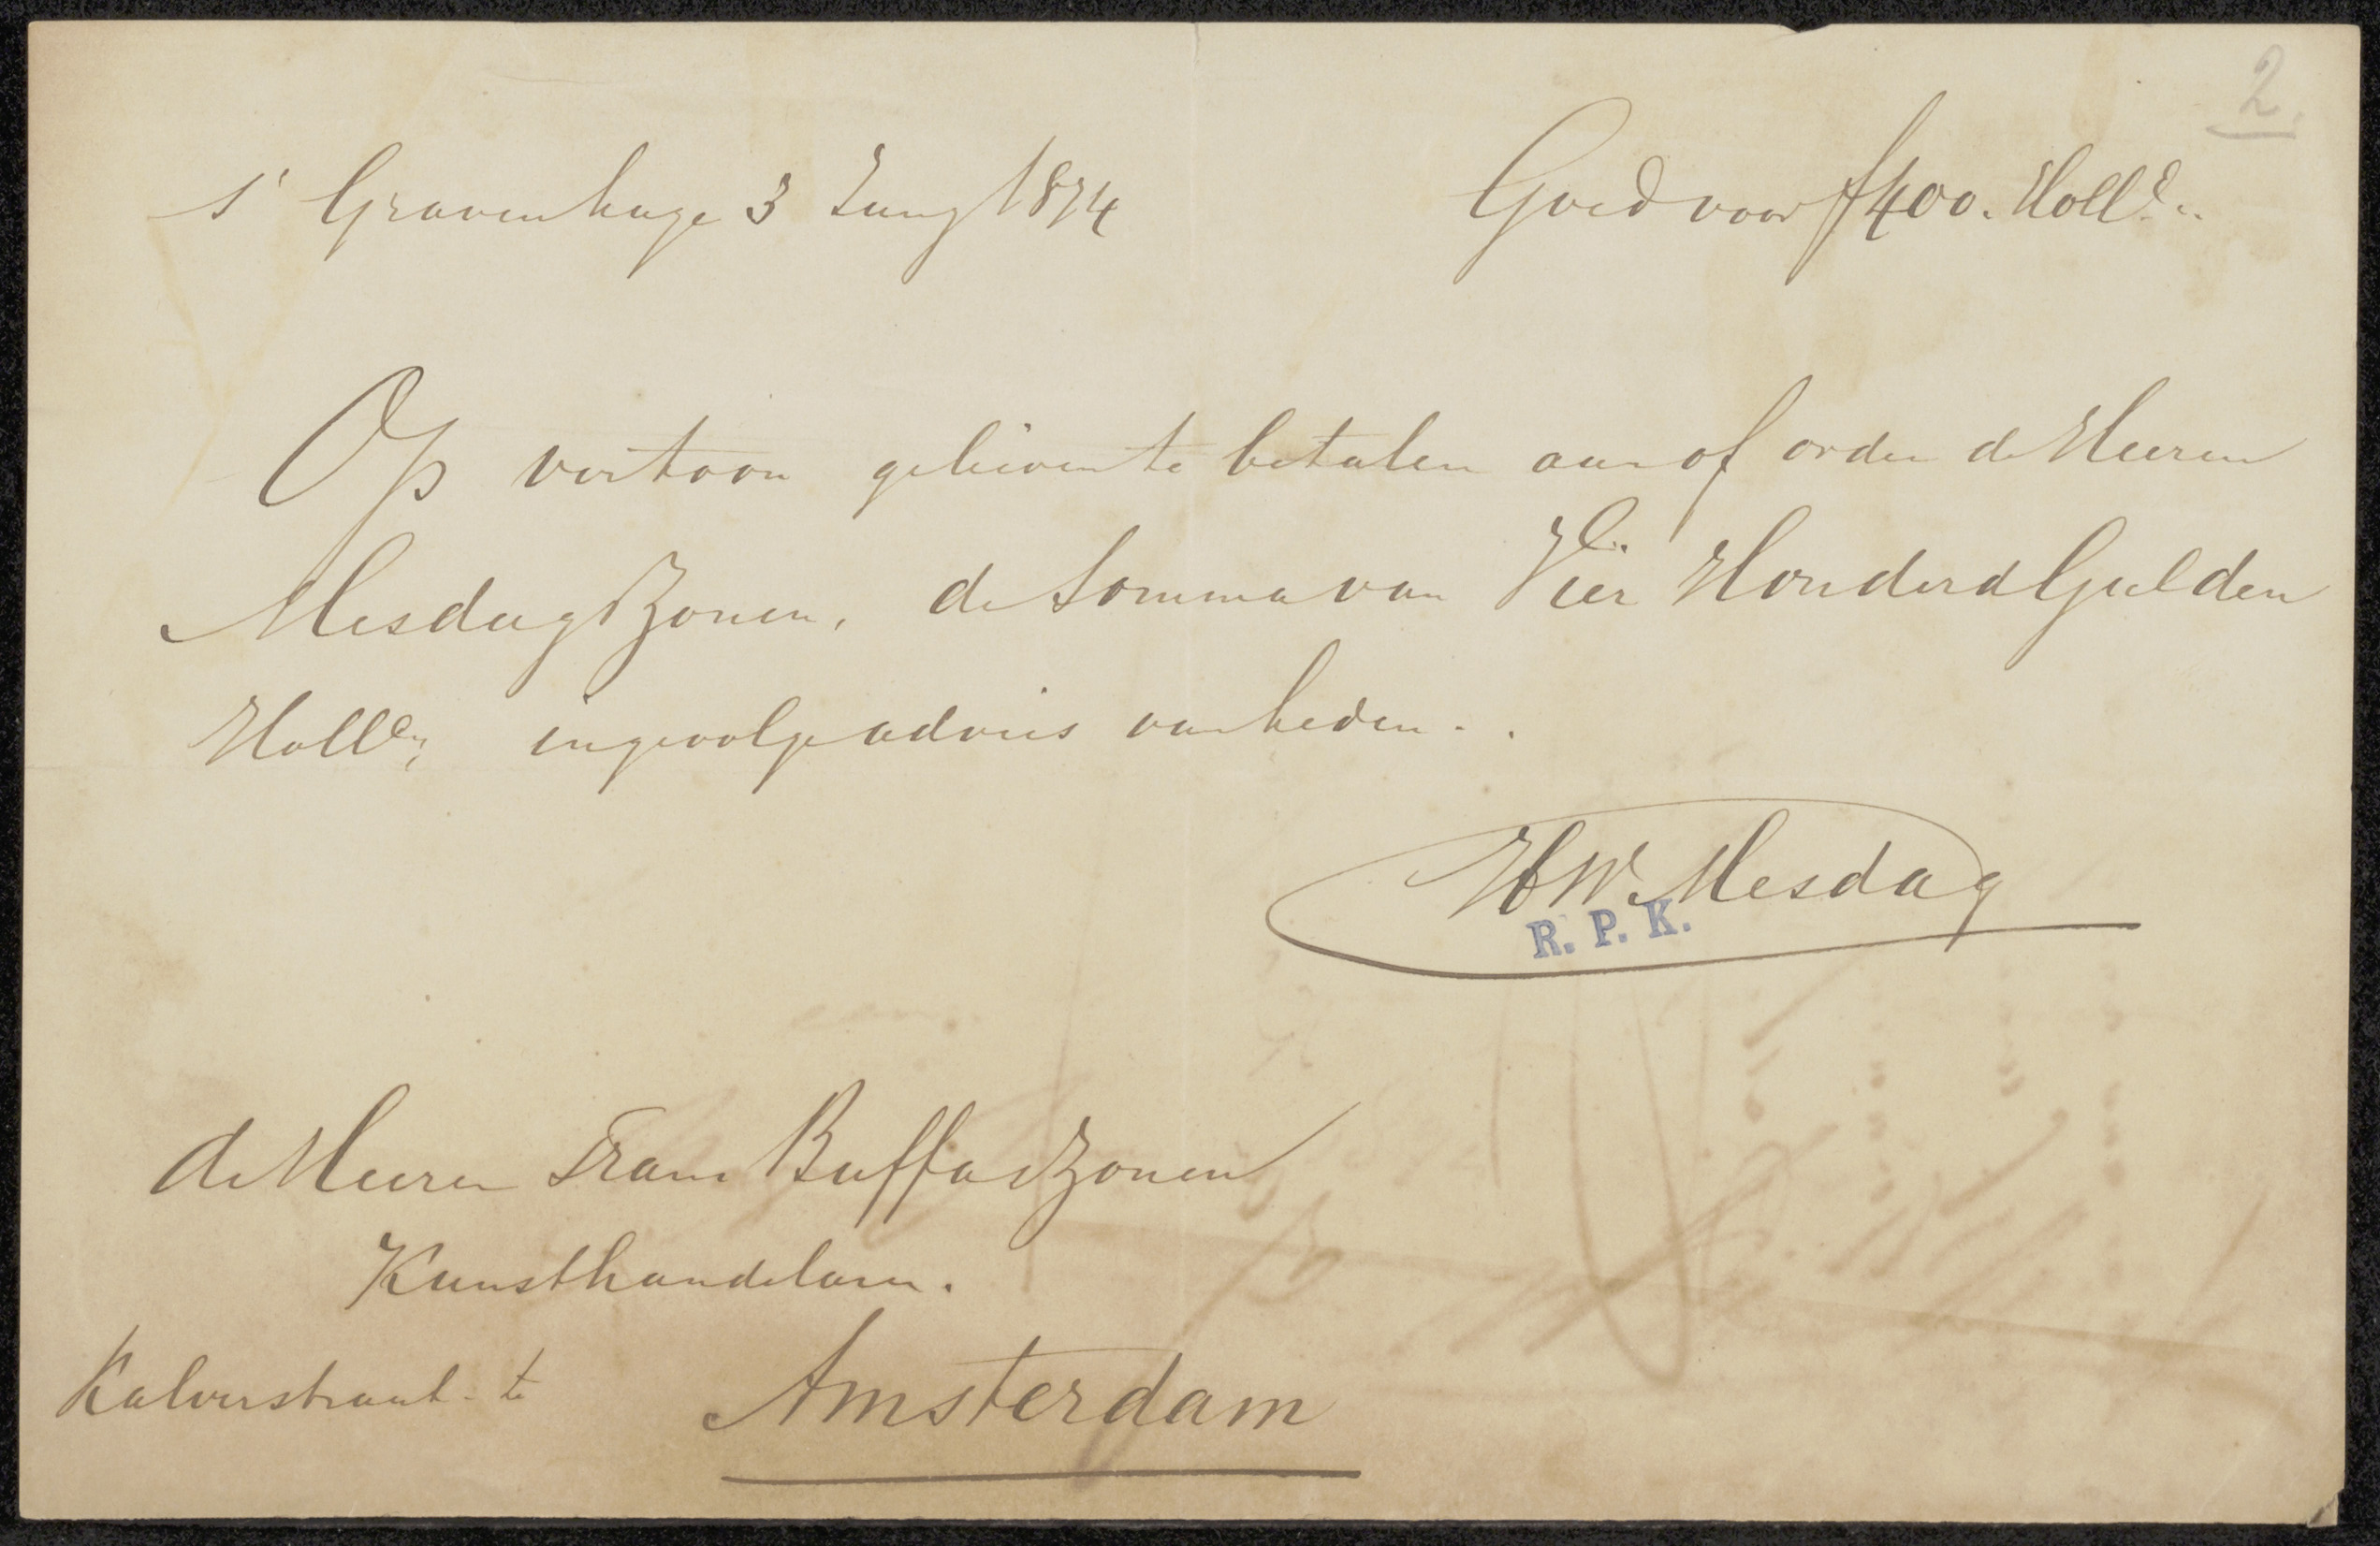 2.
s' Gravenhage 3 Juny 1874 Goed voor f400. Holld.
Op vertoon gelieven te betalen aan of order de Heeren
Mesdag & Zonen, de somma van Vier Honderd Gulden
Holld, ingevolge advies van heden.
HW. Mesdag
R. P. K.
de Heeren Frans Buffa & Zonen
Kunsthandelaren.
Kalverstraat te Amsterdam